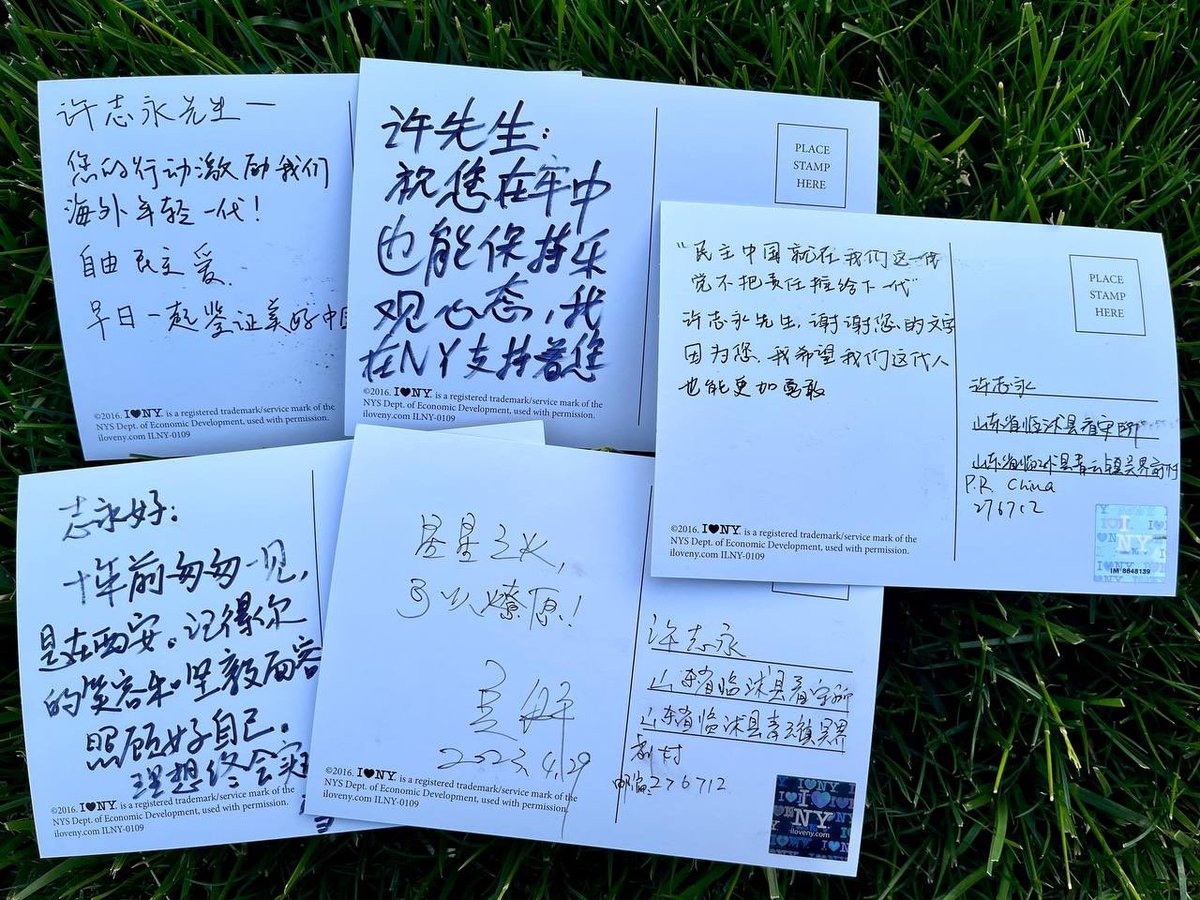 许志永先生一
您的行动激励我们
海外年轻一代！
自由 民主 爱.
早日一起鉴证美好中国
©2016. I♥NY. is a registered trademark/service mark of the
NYS Dept. of Economic Development, used with permission.
iloveny.com ILNY-0109
许先生：
祝您在牢中
也能保持乐
观心态，我
在NY支持着您
PLACE
STAMP
HERE
©2016. I♥NY. is a registered trademark/service mark of the
NYS Dept. of Economic Development, used with permission.
iloveny.com ILNY-0109
“民主中国就在我们这一代
党不把责任推给下一代”
许志永先生，谢谢您的文字
因为您、我希望我们这代人
也能更加勇敢
PLACE
STAMP
HERE
许志永
山东省临沭县看守所
山东省临沭县青云镇吴界前村
P.R. China
276712
©2016. I♥NY. is a registered trademark/service mark of the
NYS Dept. of Economic Development, used with permission.
iloveny.com ILNY-0109
I♥NY
IM 8648139
志永好：
十年前匆匆一见，
是在西安。记得你
的笑容和坚毅面容
照顾好自己。
理想终会实
©2016. I♥NY. is a registered trademark/service mark of the
NYS Dept. of Economic Development, used with permission.
iloveny.com ILNY-0109
星星之火，
可以燎原！
2023.4.29
©2016. I♥NY. is a registered trademark/service mark of the
NYS Dept. of Economic Development, used with permission.
iloveny.com ILNY-0109
许志永
山东省临沭县看守所
山东省临沭县青云镇吴界
前村
邮编276712
I♥NY
iloveny.com